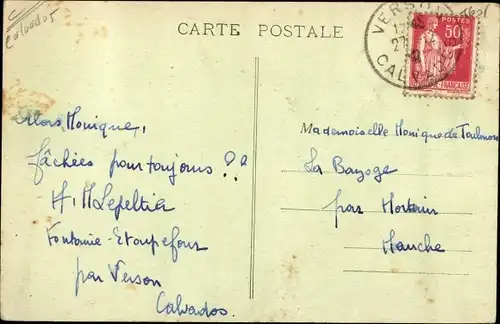 Calvados
CARTE POSTALE
VERS
CALVA
POSTES
50
Alors Monique,
fâchées pour toujours ??
H. M Lepeltier
Fontaine-Etoupefour
par Verson
Calvados.
Mademoiselle Monique de Toulmon
La Bazoge
par Mortain
Manche